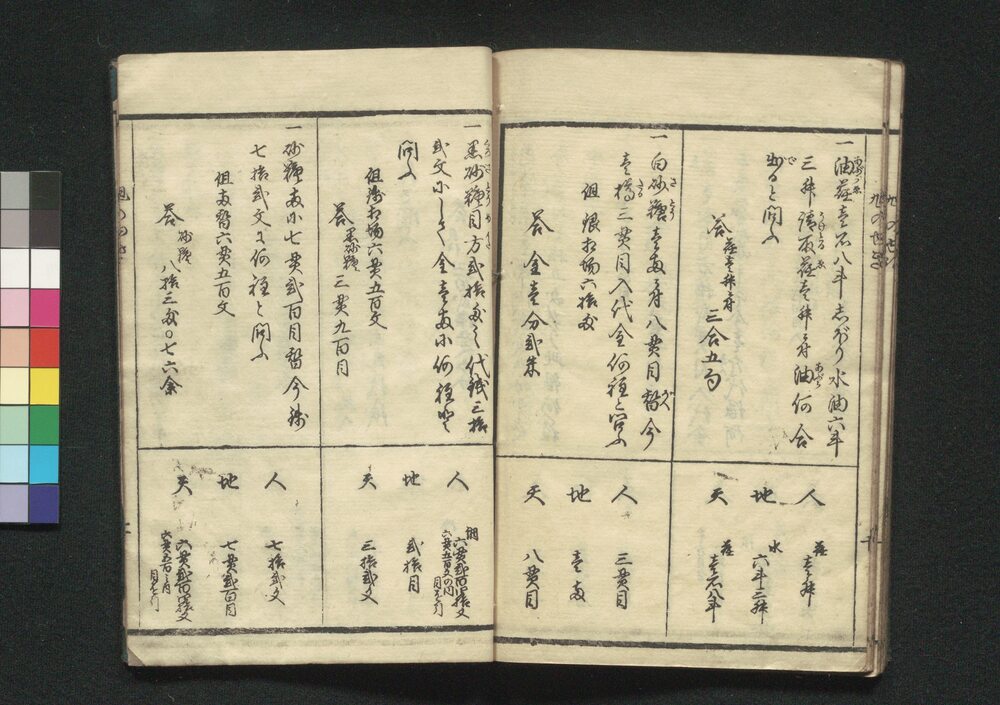 一油荏壱石八斗しぼり水油六斗
三升請取荏壱升ニ付油何合
出ると問ふ
答 荏壱升ニ付 三合五勺
人 荏壱升
地 水六斗三升
天 荏壱石八斗
一白砂糖壱両ニ付八貫目替今
壱樽三貫目入代金何程と問ふ
但 銀相場六拾匁
答 金壱分弐朱
人 三貫目
地 壱両
天 八貫目
一黒砂糖目方弐拾目ニ代銭三拾
弐文にして金壱両に何程と
問ふ
但銭相場六貫五百文
答 黒砂糖 三貫九百目
人 六貫弐百四拾文
六貫五百文の内
目を引
地 弐拾目
天 三拾弐文
一砂糖両に七貫弐百目替今銭
七拾弐文ニ何程と問ふ
但両替六貫五百文
答 砂糖 八拾三匁〇七六余
人 七拾弐文
地 七貫弐百目
天 六貫弐百四拾文
六貫五百の内
目を引